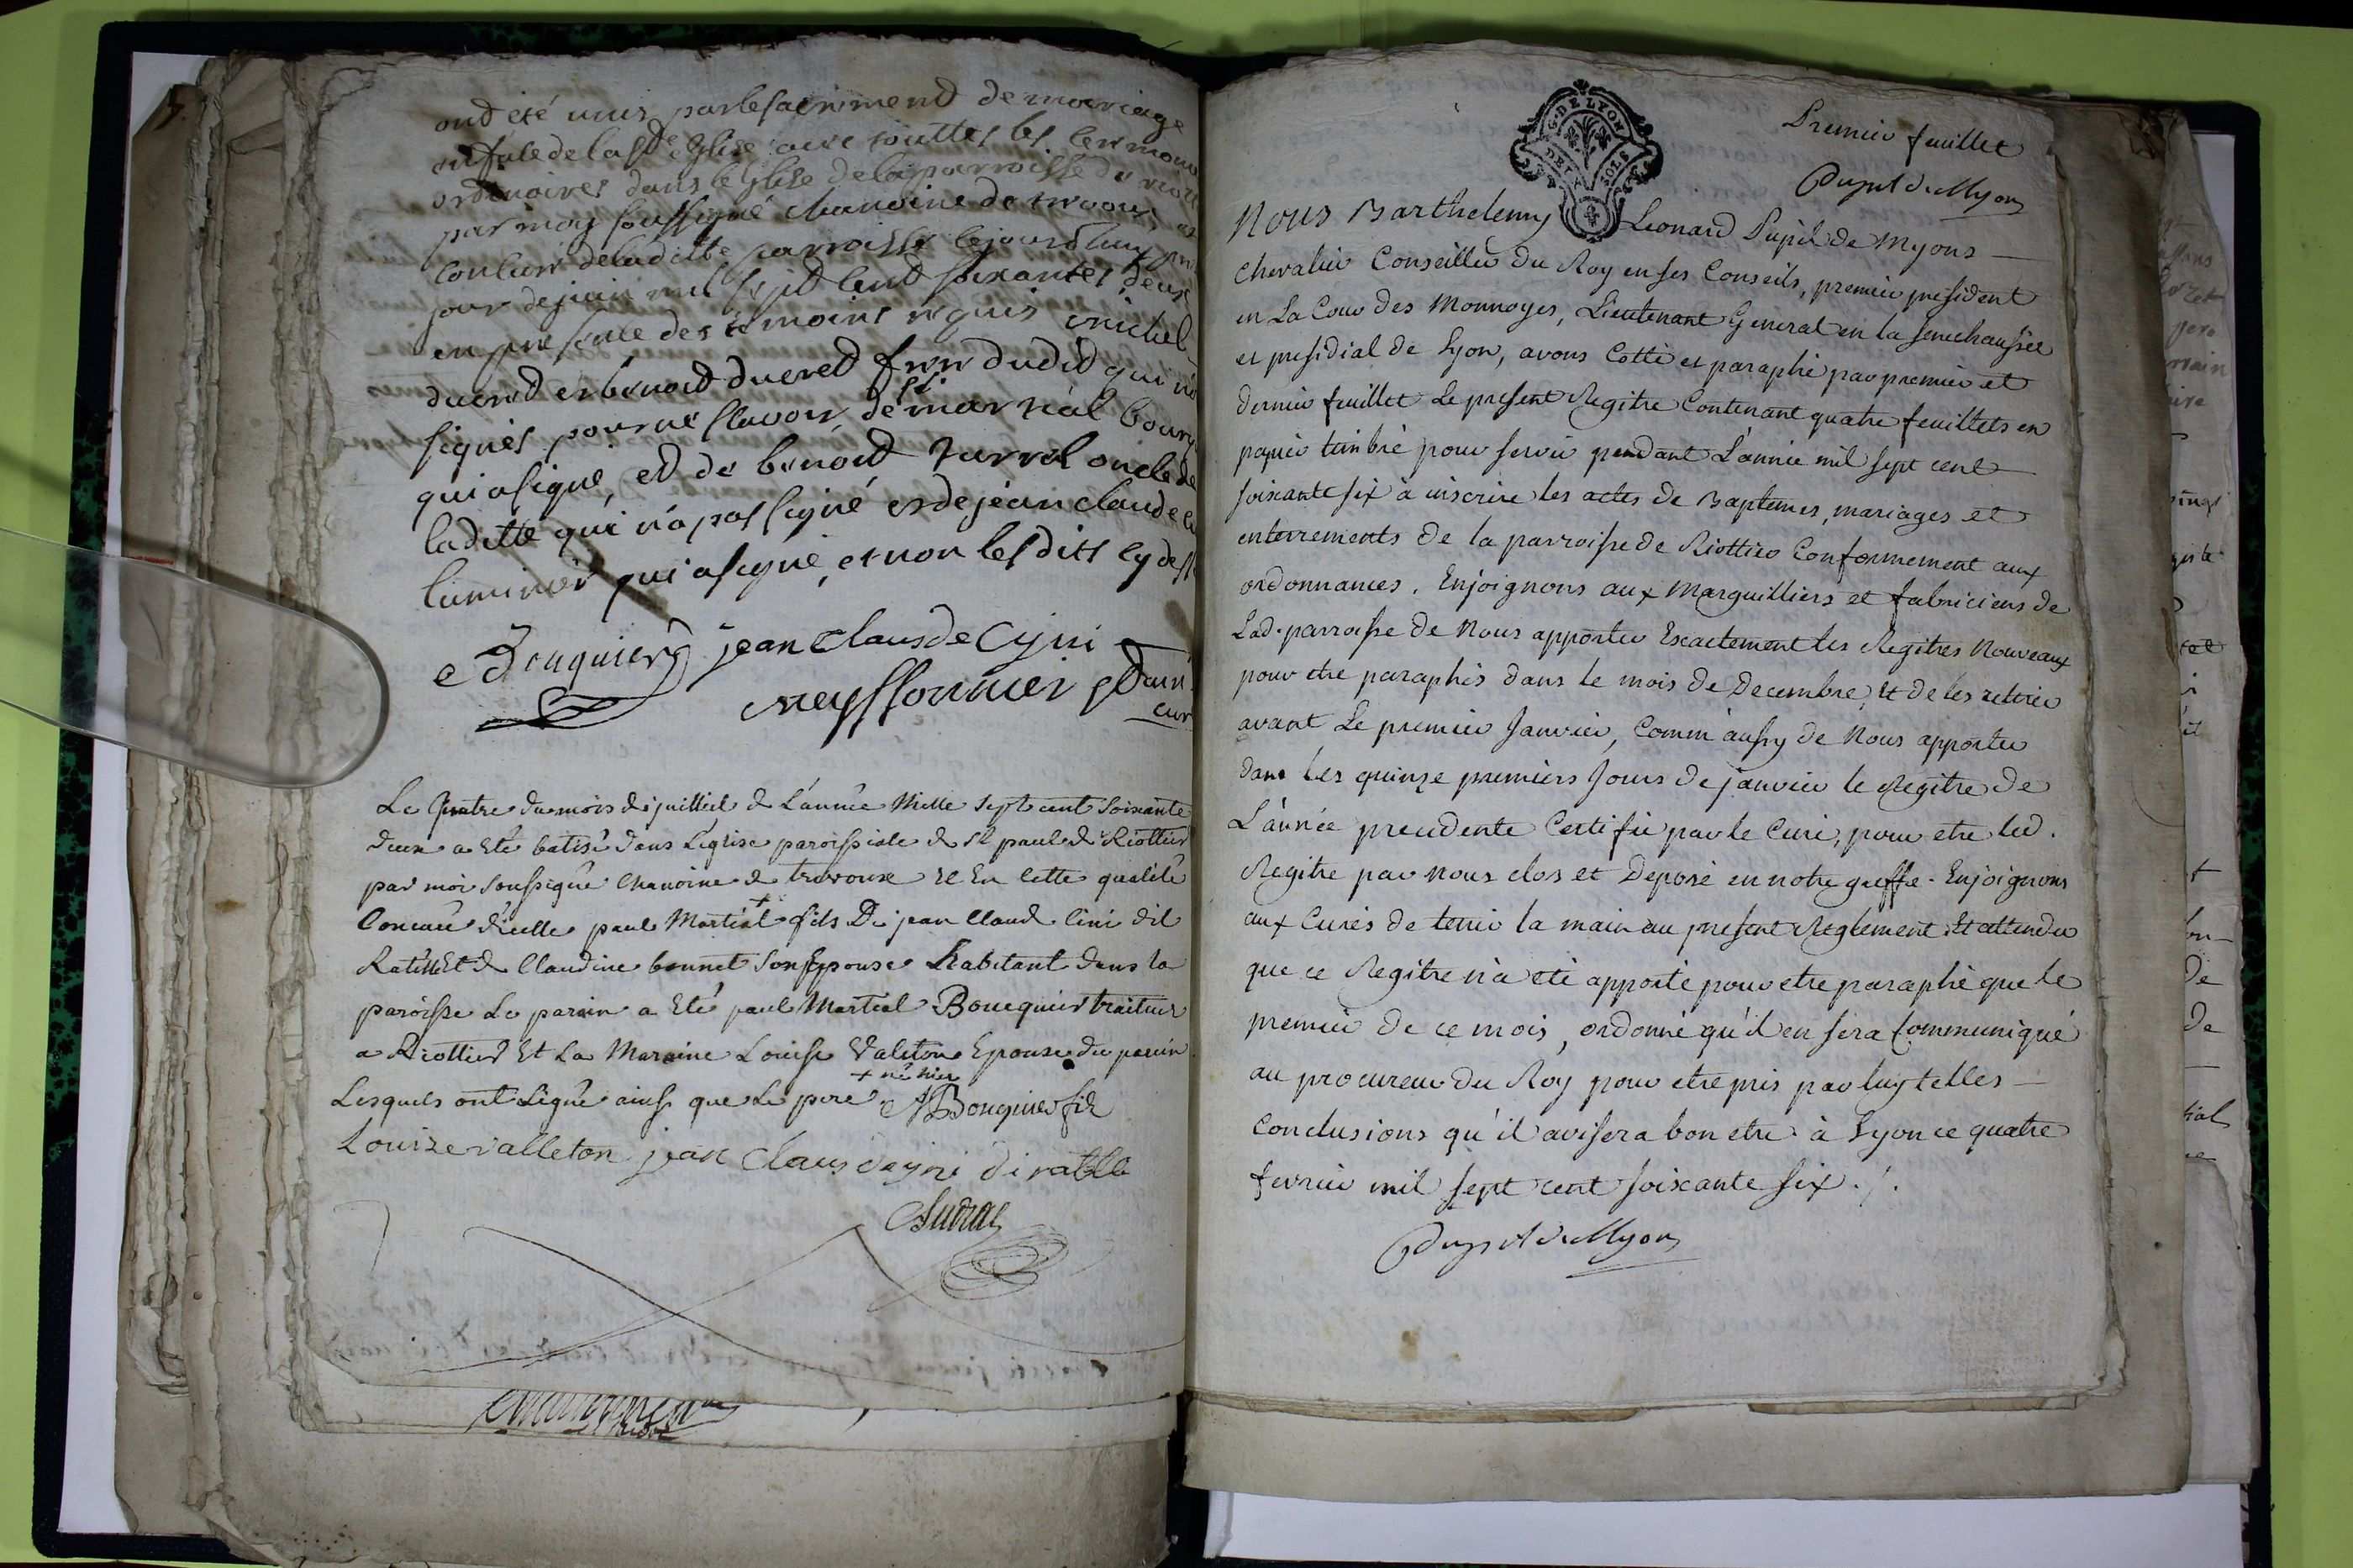 ond été unis par le sacrement de mariage
en face de la ste Eglise avec touttes les
ordinaires dans léglise de la parroisse de
par moy soussigné chanoine de trevoux
de laditte parroisse le jourdhuy
jour de juin mil sept cent soixantes deux
en presence des temoins requis michel
ducred et benoid ducred frere dudid qui
signés pour ne scavoir, de st martial
qui a signé, ed de benoid oncle de
laditte qui n'a pas signé et de jean claude
luminier qui a signé, et non lesdits cy
Bouquier jean Clausde Cyni
Meyssonnier
cur
Le quatre du mois de juilliet de L'année Mille sept cent soixante
deux a Eté batisé dans L'eglise paroissiale de St paul de Riottier
par moi soussigné Chanoine de trevoux et En cette qualité
d'icelle paul Martial + fils De jean Claud Cini dit
Ratill Et de Claudine bonnet son Epouse habitant dans la
paroisse Le parain a Eté paul Martial Boucquier traiteur
a Riottier Et La Maraine Louise Valeton Epouse du parain
+ né hier
Lesquels ont signé ainsi que le pere Bouquier fils
Louize valleton jean Claus
G. DE LYON
DEUX SOLS
Premier feuillet
Pupil de Myons
Nous Barthelemy Leonard Pupil de Myons
Chevalier Conseiller du Roy en ses Conseils, premier president
en La Cour des Monnoyes, Lieutenant General en la senechaussée
et presidial de Lyon, avons Cotté et paraphé par premier et
dernier feuillet Le present Regitre Contenant quatre feuillets en
papier timbré pour servir pendant L'année mil sept cent
soixante six à inscrire les actes de Baptemes, mariages et
enterrements de la parroisse de Riottier Conformement aux
ordonnances. Enjoignons aux Marguilliers et fabriciens de
Lad. parroisse de Nous apporter Exactement les Regitres Nouveaux
pour etre paraphés dans le mois de Decembre, et de les retirer
avant Le premier Janvier, Comm'aussy de Nous apporter
dans les quinze premiers Jours de janvier le Regitre de
L'année precedente Certifié par le Curé, pour etre led.
Regitre par nous clos et Deposé en notre greffe. Enjoignons
aux Curés de tenir la main au present Reglement Et attendu
que ce Regitre n'a eté apporté pour etre paraphé que le
premier de ce mois, ordonné qu'il en sera Communiqué
au procureur du Roy pour etre pris par luy telles
Conclusions qu'il avisera bon etre à Lyon ce quatre
fevrier mil sept cent soixante six ./.
Pupil de Myons